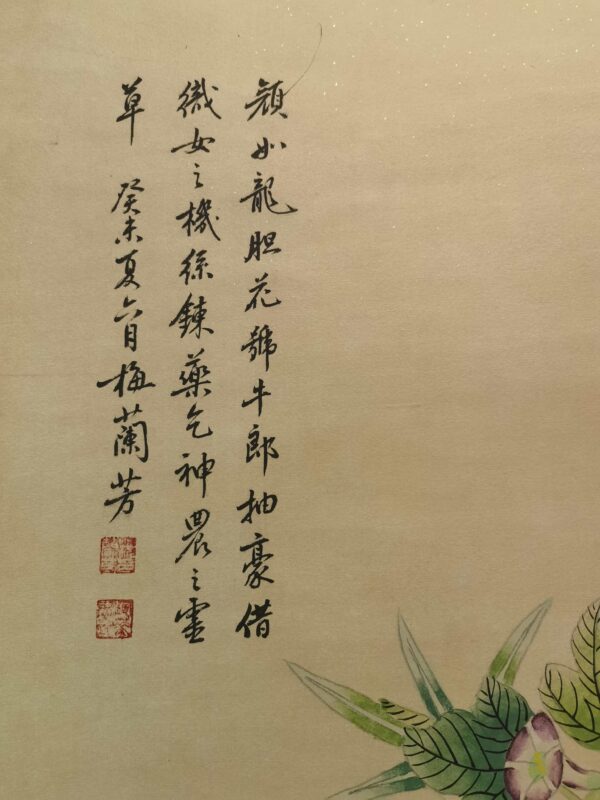 顔如龍胆花號牛郎抽豪借
織女之機絲鍊藥乞神農之靈
草 癸未夏六月梅蘭芳